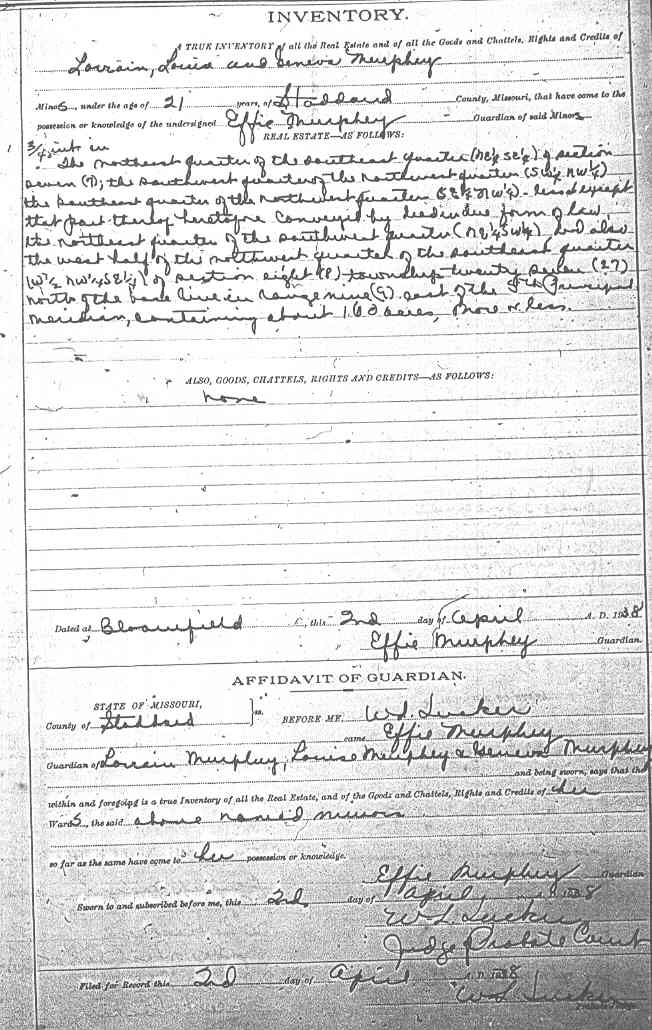 INVENTORY.
A TRUE INVENTORY of all the Real Estate and of all the Goods and Chattels, Rights and Credits of
Lorrain, Louise and Geneva Murphey
Minors, under the age of 21 years, of Stoddard County, Missouri, that have come to the
possession or knowledge of the undersigned Effie Murphey Guardian of said Minors
REAL ESTATE—AS FOLLOWS:
3/4 int in
The northeast quarter of the southeast quarter (NE¼ SE¼) of section
seven (7); the southwest quarter of the northwest quarter (SW¼ NW¼)
the southeast quarter of the northwest quarter SE¼ NW¼) - less & except
that part thereof heretofore conveyed by deed in due form of law,
the northeast quarter of the southwest quarter (NE¼ SW¼) and also
the west half of the northwest quarter of the southeast quarter
(W½ NW¼ SE¼) of section eight (8) township twenty seven (27)
north of the base line in range nine (9) east of the 5th Principal
Meridian, containing about 160 acres, more or less.
ALSO, GOODS, CHATTELS, RIGHTS AND CREDITS—AS FOLLOWS:
none
Dated at Bloomfield, this 2nd day of April A. D. 1938
Effie Murphey Guardian.
AFFIDAVIT OF GUARDIAN.
STATE OF MISSOURI,
County of Stoddard ss. BEFORE ME, W L Tucker
came Effie Murphey
Guardian of Lorrain Murphey, Louise Murphey & Geneva Murphey
and being sworn, says that the
within and foregoing is a true Inventory of all the Real Estate, and of the Goods and Chattels, Rights and Credits of her
Wards, the said above named minors
so far as the same have come to her possession or knowledge.
Effie Murphey Guardian
Sworn to and subscribed before me, this 2nd day of April, 1938
W L Tucker
Judge Probate Court
Filed for Record this 2nd day of April A. D. 1938
W L Tucker